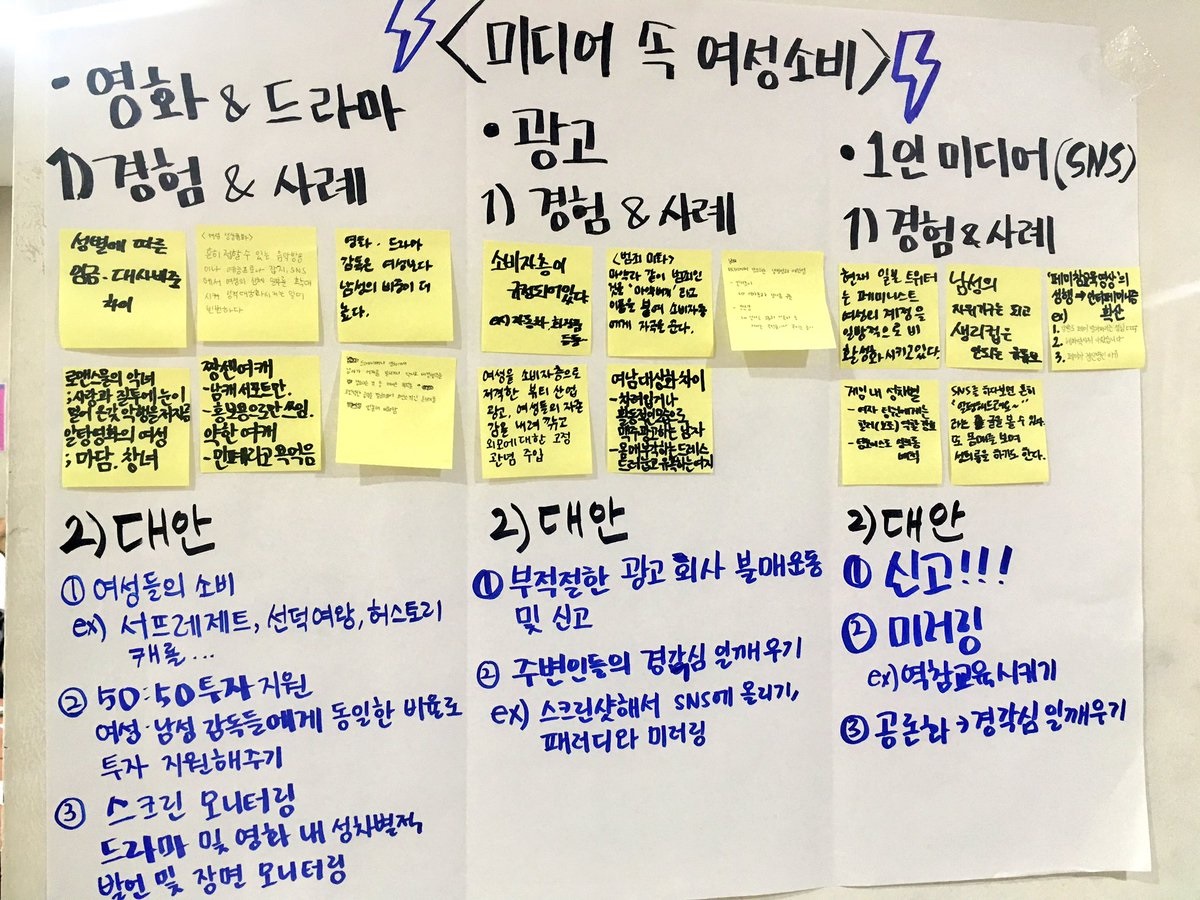 <미디어 속 여성소비>
• 영화 & 드라마
1) 경험 & 사례
성별에 따른
임금·대사비중
차이
흔히 접할 수 있는 음악방송
영화·드라마
감독은 여성보다
남성의 비중이 더
높다.
로맨스물의 악녀
; 사랑과 질투에 눈이
멀어 온갖 악행을 저지름
알탕영화의 여성
; 마담, 창녀
짱센여캐
- 남캐 서포트만.
- 홍보용으로만 쓰임.
약한 여캐
- 민폐라고 욕먹음
2) 대안
① 여성들의 소비
ex) 서프레제트, 선덕여왕, 허스토리
캐롤...
② 50:50 투자 지원
여성·남성 감독들에게 동일한 비율로
투자 지원해주기
③ 스크린 모니터링
드라마 및 영화 내 성차별적
발언 및 장면 모니터링
• 광고
1) 경험 & 사례
소비자층이
규정되어있다
ex) 자동차, 화장품
등등
<범죄 미화>
마약과 같이 범죄인
것을 '마약베개'라고
이름을 붙여 소비자들
에게 자극을 준다.
여성을 소비자층으로
저격한 뷰티 산업
광고, 여성들의 자존
감을 내려 깎고
외모에 대한 고정
관념 주입
여남 대상화 차이
- 차려입거나
활동적인 옷으로
맥주광고하는 남자
- 몸매 부각하는 드레스
드러눕고 유혹하는 여자
2) 대안
① 부적절한 광고 회사 불매운동
및 신고
② 주변인들의 경각심 일깨우기
ex) 스크린샷해서 SNS에 올리기,
패러디와 미러링
• 1인 미디어(SNS)
1) 경험 & 사례
현재 일본 트위터
는 페미니스트
여성의 계정을
일방적으로 비
활성화 시키고 있다.
남성의
자위기구는 되고
생리컵은
안되는
'페미참교육영상'의
성행 → 안티페미니즘
ex) 확산
1.
2.
3.
게임 내 성차별
- 여자 입문에게는
SNS를 하다보면 흔히
라는 글을 볼 수 있다.
또 몸매를 보며
성희롱을 하기도 한다.
2) 대안
① 신고!!!
② 미러링
ex) 역참교육시키기
③ 공론화 → 경각심 일깨우기